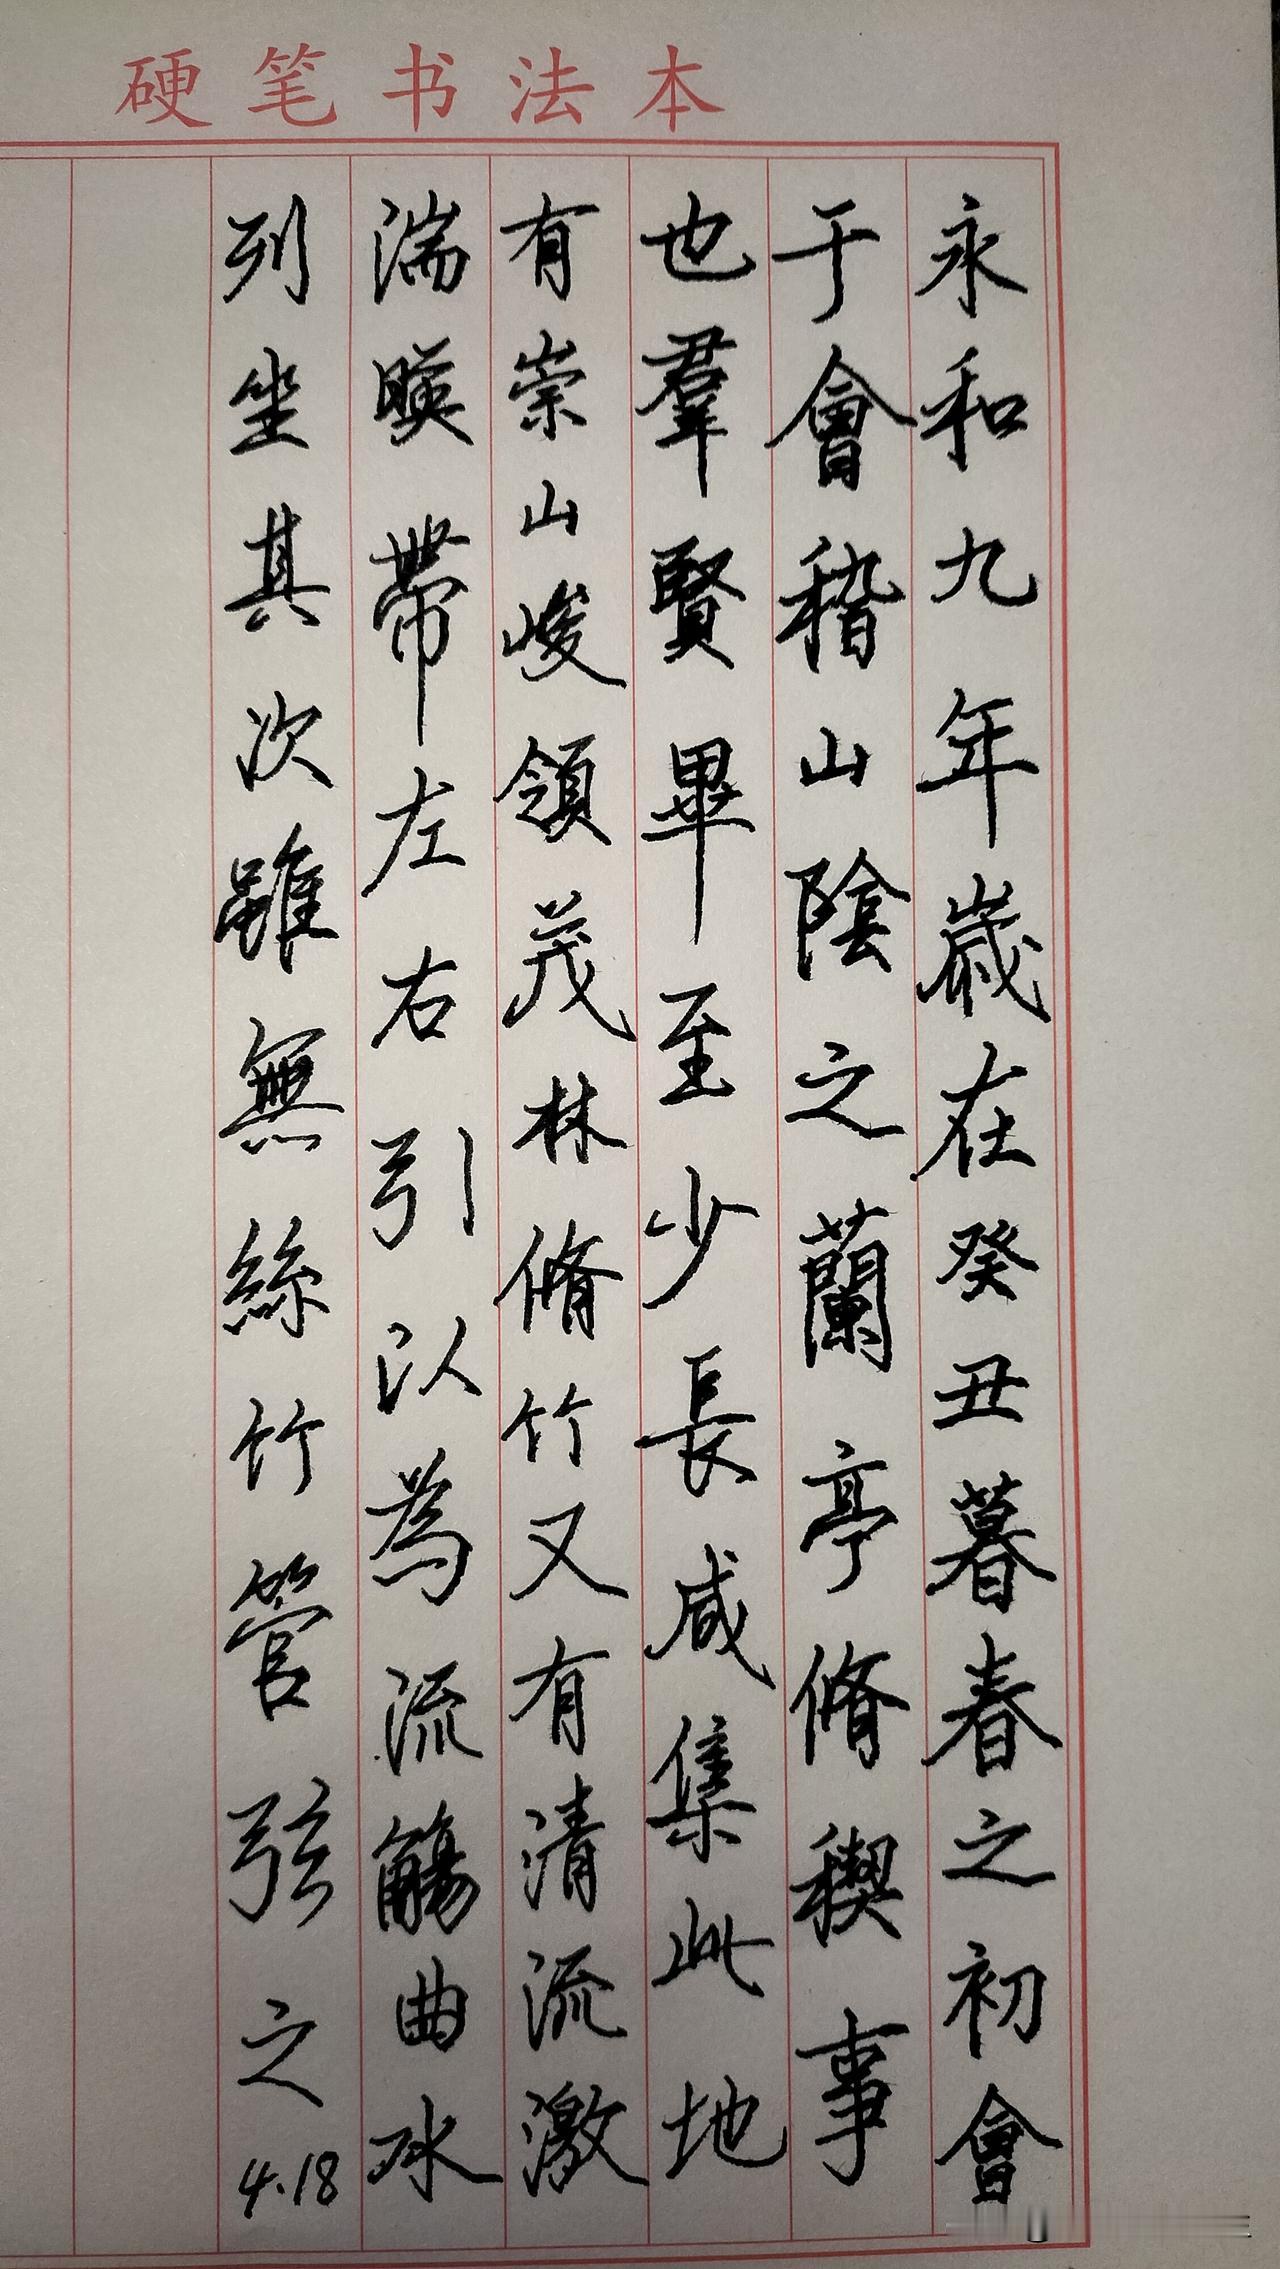 硬笔书法本
永和九年歲在癸丑暮春之初會
于會稽山陰之蘭亭脩稧事
也羣賢畢至少長咸集此地
有崇山峻領茂林脩竹又有清流激
湍暎帶左右引以為流觴曲水
列坐其次雖無絲竹管弦之
4.18